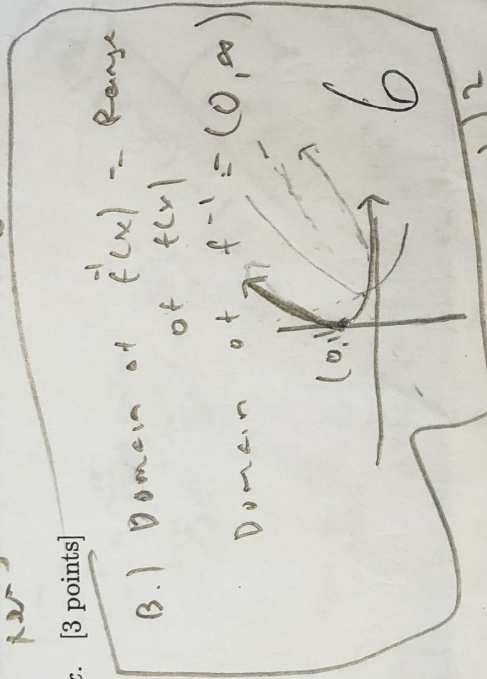 c. [3 points]
B.) Domain of f⁻¹(x) = Range
of f(x)
Domain of f⁻¹ = (0, ∞)
(0,1)
6